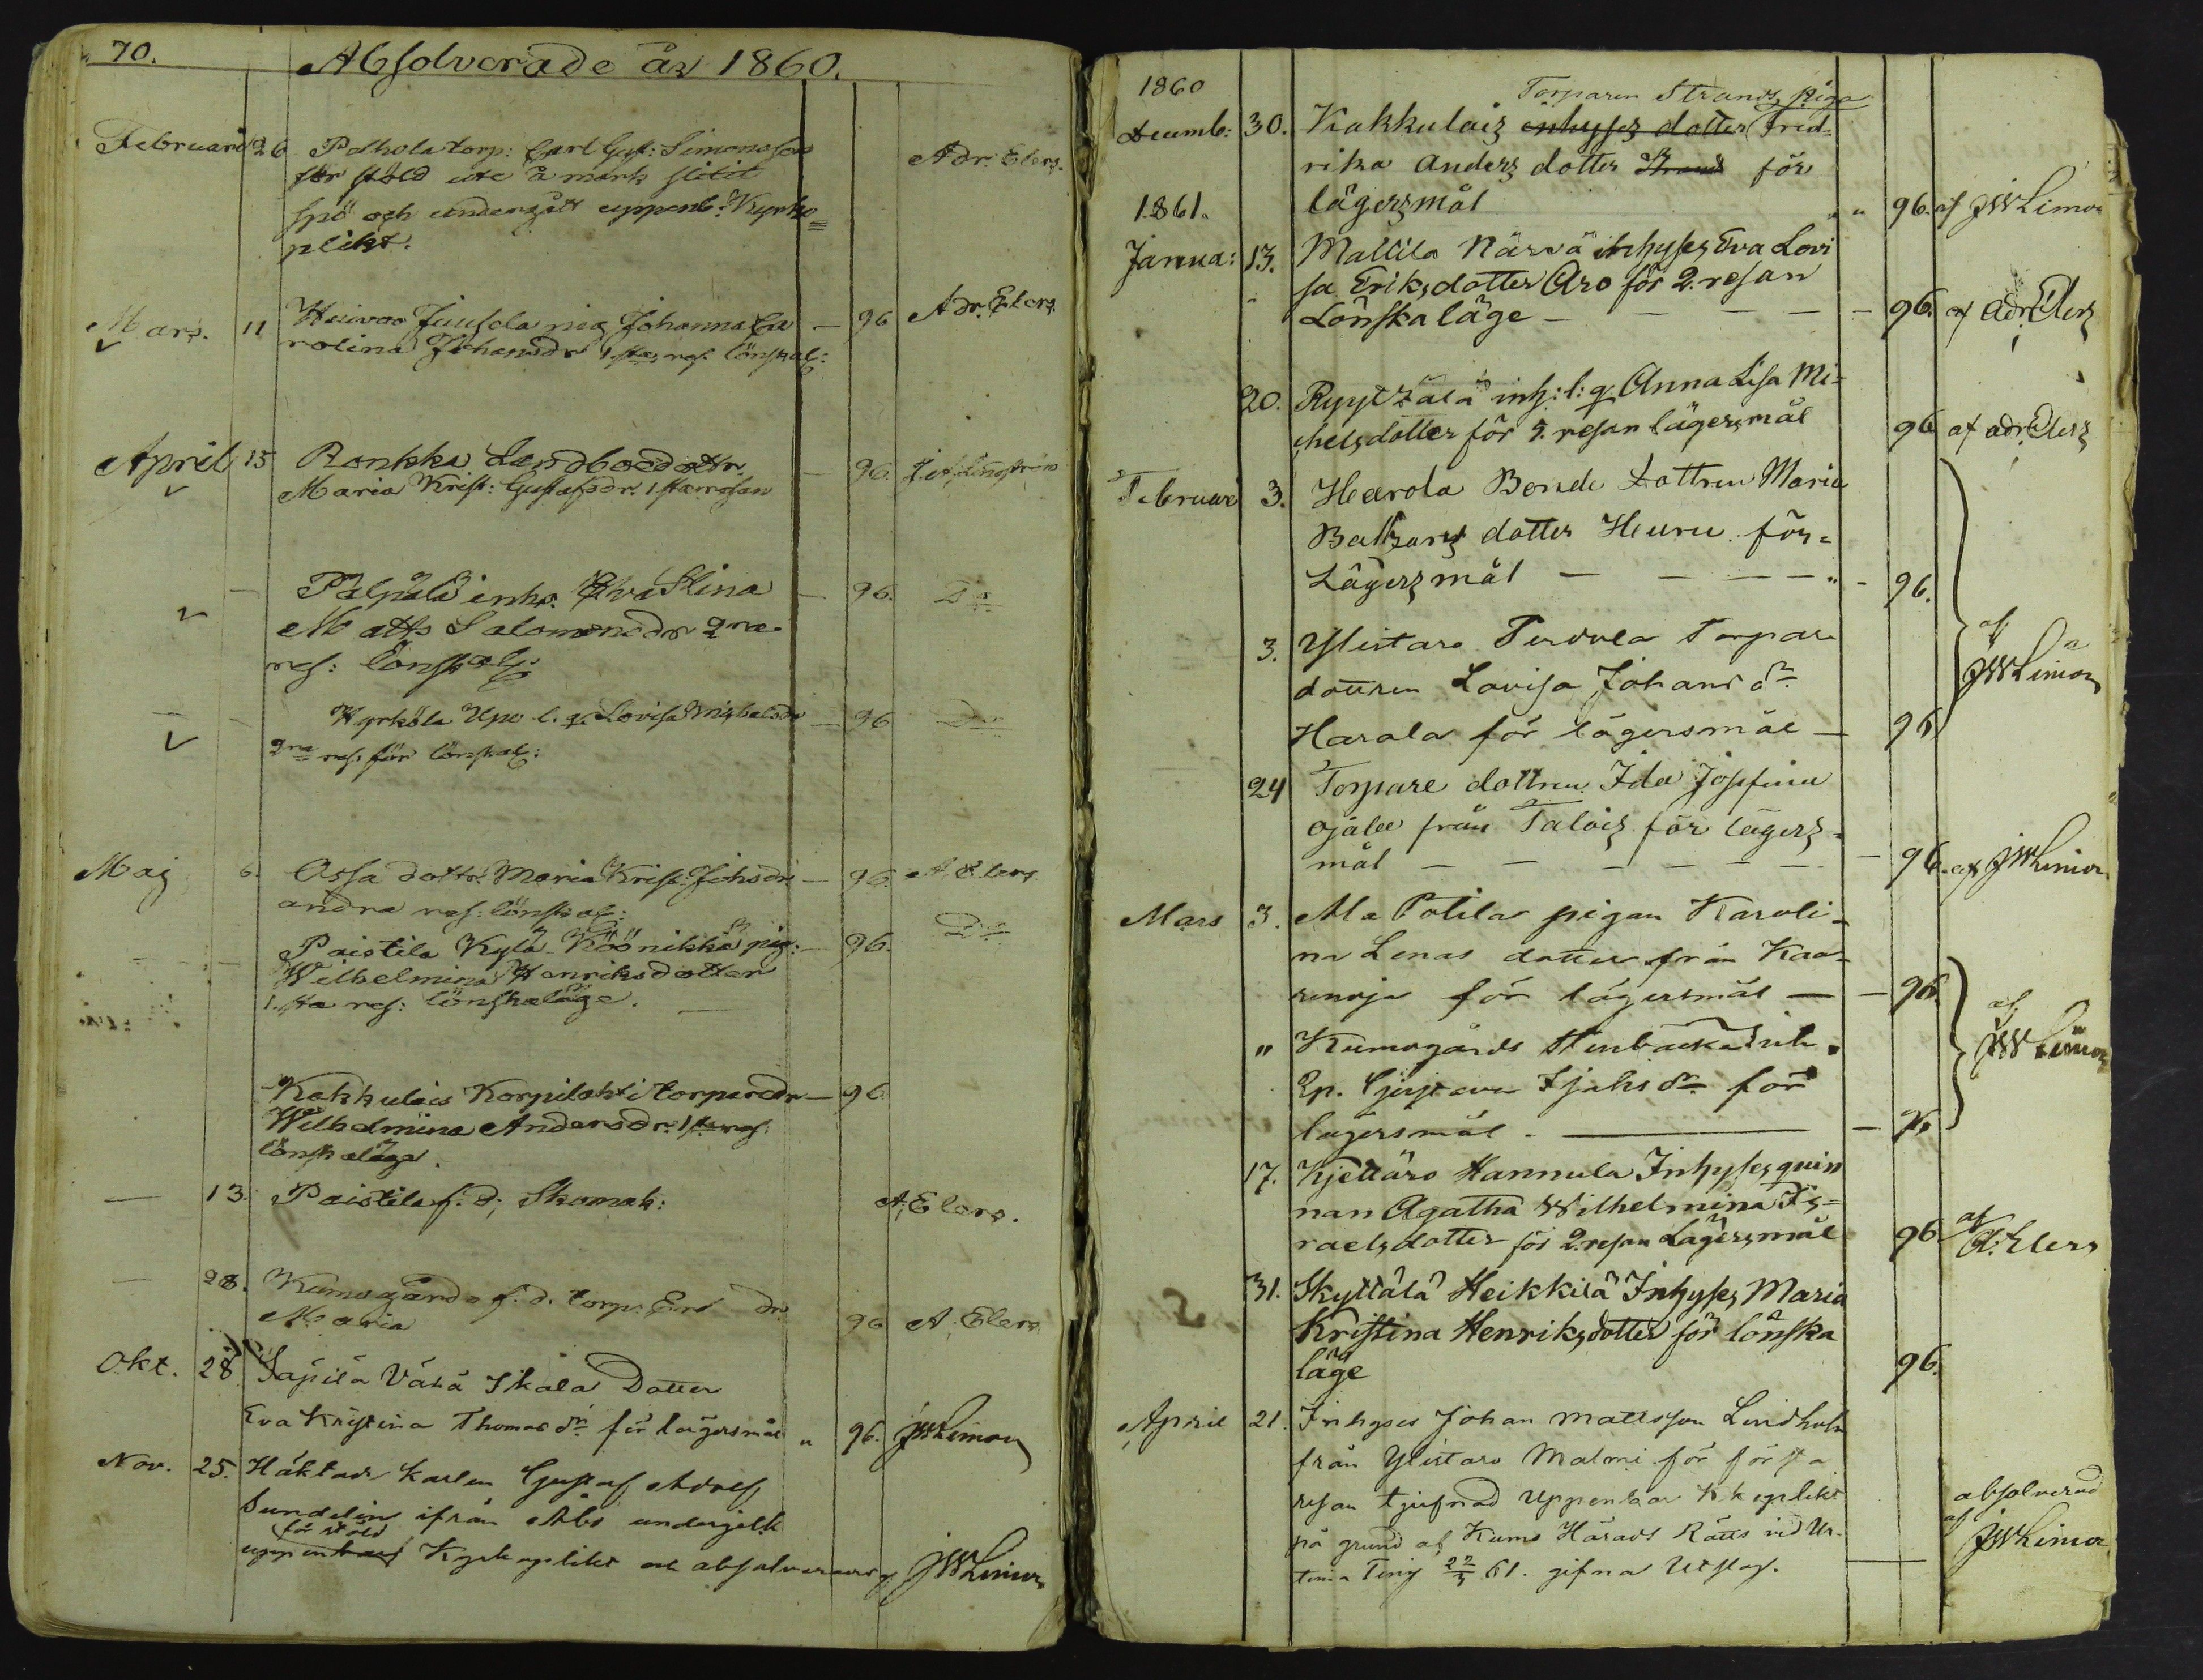 70.
Absolverade år 1860.
Februari 26 Pohola torp: Carl Gust: Simonsson Adr. Elers.
för stöld ute å mark slitit
spö och undergått uppenb: Kyrko
plikt.
Mars. 11 Huivoo Juusela pig Johanna Ca — 96 Adr. Elers.
rolina Johansdr 1.sta res. lönskal:
April 15 Ronkka Landboedottr — 96.
Maria Krist: Gustafsdr. 1 sta resan
— Pälpälä inhs. Eva Stina — 96. Do
Matts Salomonsdr 2ra
res: lönskal:
Hyrköla Upo l. q. Lovisa Michelsdr — 96 Do
2ra res. för lönskal:
Maj 6. Assa dottr. Maria Krist. Johsdr. — 96. A. Elers
andra res: lönskal:
Paistila Kylä-Köönikkä pig: — 96. Do
Wilhelmina Henriksdotter
1.sta res: lönskaläge.
Kakkulais Korpilahti torparedr — 96
Wilhelmina Andersdr. 1 sta res.
lönskaläge.
— 13. Paistila f. d. Skomak: A. Elers.
— 28. Kumogårds f. d. torp. dr.
Maria 96 A. Elers
Okt. 28 Säpilä Välä Skala Dotter
Eva Kristina Thomas dr för lägersmål " 96. JWLimon
Nov. 25. Häktade Karlen Gustaf Adolf
Sundelin ifrån Åbo undergick
för stöld
uppenbar Kyrkoplikt och absolverades af JWLimon
1860
Torparen Strands Piga
Decemb: 30. Kakkulais inhyses dotter Fred-
rika Anders dotter Strand för
1861. lägersmål " " 96. af JWLimon
Janua: 13. Mattila Närvä inhyses Eva Lovi
sa Eriksdotter Aro för 2. resan
Lönskaläge — — — — — 96. af Adr. Elers
20. Ryytzälä inh: l: q Anna Lisa Mi-
chelsdotter för 5. resan lägersmål 96 af Adr. Elers
Februari 3. Haarola Bonde Dottren Maria
Baltzars dotter Heuru för-
Lägersmål — — — — " — 96.
3. Ylistaro Torpare
dottren Lovisa Johans dr
Harola för lägersmål — 96
af
JWLimon
24 Torpare dottren Ida Josefina
Ojala från Talois för lägers-
mål — — — — — — — 96. af JWLimon
Mars 3. Ala Potila pigan Karoli-
na Lenas dotter från Kaa-
renoja för lägersmål — — 96.
" Kumogårds Stenbacka
för
lägersmål. — — 96
af
JWLimon
17. Kjettäro Hannula Inhyses quin
nan Agatha Wilhelmina Is-
raelsdotter för 2. resan Lägersmål 96 af
A. Elers
31. Skyttälä Heikkilä Inhyses Maria
Kristina Henriksdotter för lönska
läge 96.
April 21. Inhyses Johan Mattsson Lindholm
från Ylistaro Malmi för första
resan tjufnad uppenbar Kkoplikt absolverad
på grund af Kumo Härads Rätts vid Ur- af JWLimon
tima Ting 22/3 61. gifna Utslag.